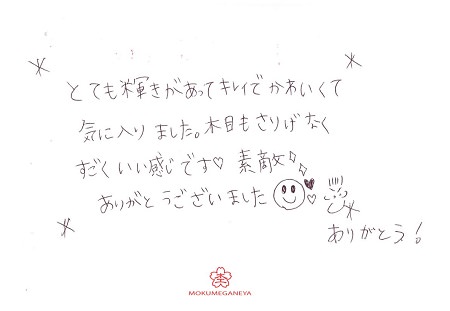 とても輝きがあってキレイでかわいくて
気に入りました。木目もさりげなく
すごくいい感じです♡素敵✧✧
ありがとうございました
ありがとう!
MOKUMEGANEYA